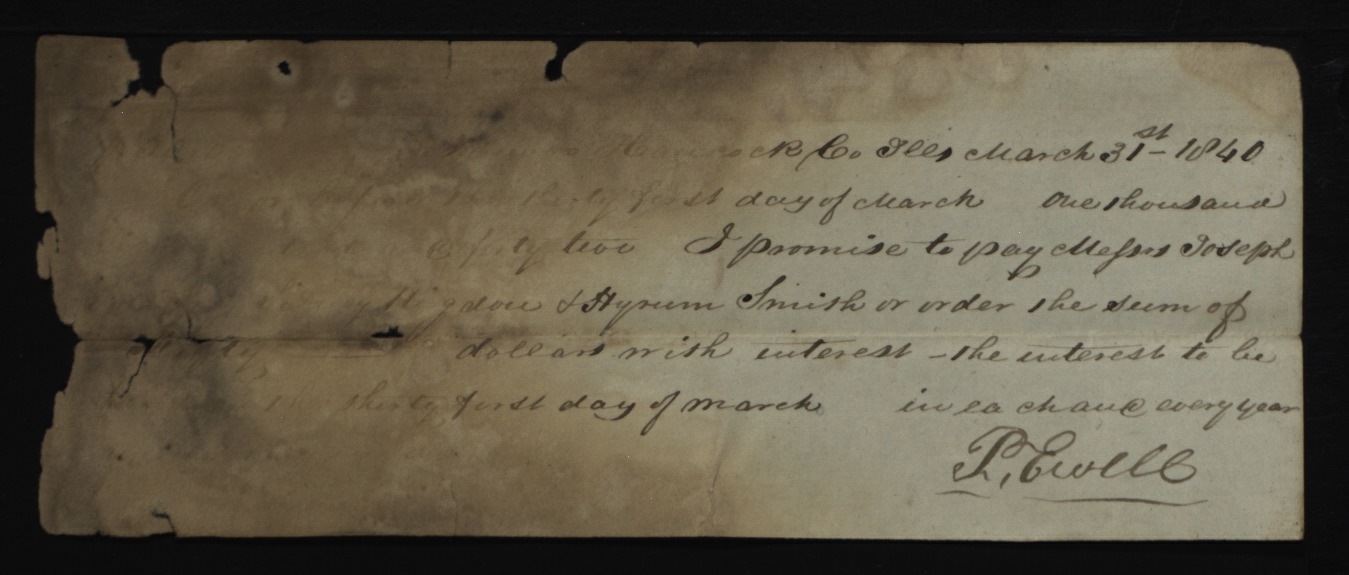 Hancock Co Ills March 31st - 1840
thirty first day of March One thousand
& forty two I promise to pay Messrs Joseph
Rigdon & Hyrum Smith or order the sum of
dollars with interest - the interest to be
the thirty first day of march in each and every year
P, Ewell